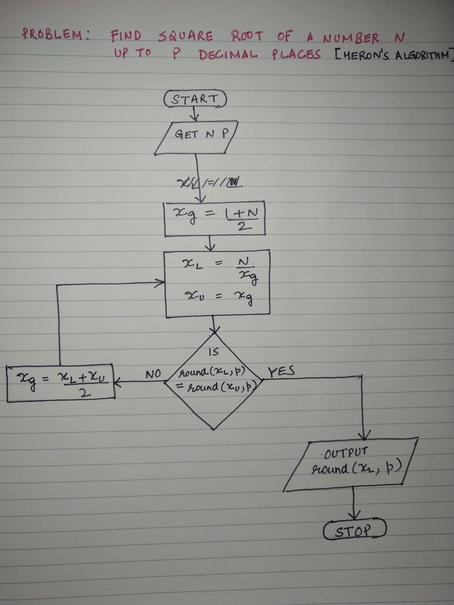 PROBLEM: FIND SQUARE ROOT OF A NUMBER N
UP TO P DECIMAL PLACES [HERON'S ALGORITHM]
START
GET N P
xg = 1+N
2
xL = N
xg
xU = xg
IS
round(xL, p)
= round(xU, p)
NO
YES
xg = xL+xU
2
OUTPUT
round(xL, p)
STOP